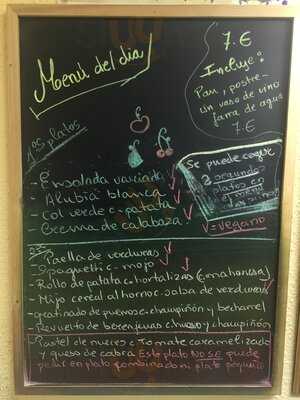 Menú del dia
7.€
Incluye:
Pan, postre
un vaso de vino
jarra de agua
7.€
1os platos
- Ensalada variada
- Alubia blanca
- Col verde c. patata
- Crema de calabaza
Se puede coger
2 segundos
platos en
el menú
V = vegano
2os
- Paella de verduras
- Spaguetti c. mojo
- Rollo de patata c. hortalizas (c. mahonesa)
- Mijo cereal al horno c. salsa de verduras
- gratinado de puerros c. champiñón y bechamel
- Revuelto de berenjenas c. huevo y champiñón
Pastel de nueces c. Tomate caramelizado
y queso de cabra Este plato NO SE puede
pedir en plato combinado ni plato pequeño